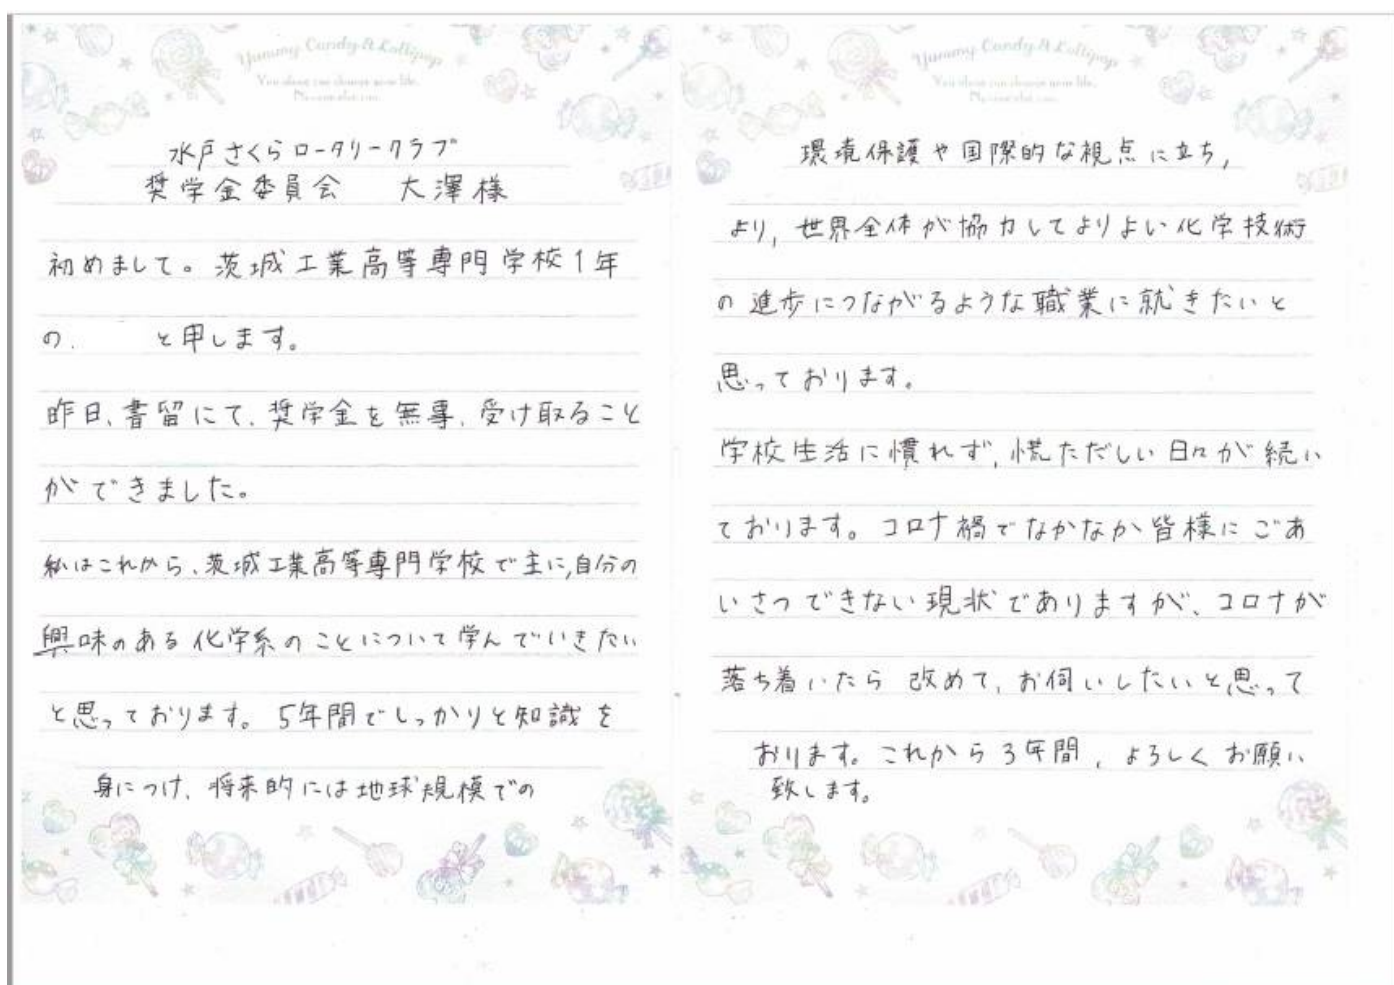 Yummy Candy & Lollipop
You alone can change your life.
No one else can.
水戸さくらロータリークラブ
奨学金委員会 大澤様
初めまして。茨城工業高等専門学校1年
の. と申します。
昨日、書留にて、奨学金を無事、受け取ること
ができました。
私はこれから、茨城工業高等専門学校で主に,自分の
興味のある化学系のことについて学んでいきたい
と思っております。5年間でしっかりと知識を
身につけ、将来的には地球規模での
Yummy Candy & Lollipop
You alone can change your life.
No one else can.
環境保護や国際的な視点に立ち,
より,世界全体が協力してよりよい化学技術
の進歩につながるような職業に就きたいと
思っております。
学校生活に慣れず,慌ただしい日々が続い
ております。コロナ禍でなかなか皆様にごあ
いさつできない現状でありますが、コロナが
落ち着いたら改めて、お伺いしたいと思って
おります。これから3年間,よろしくお願い
致します。